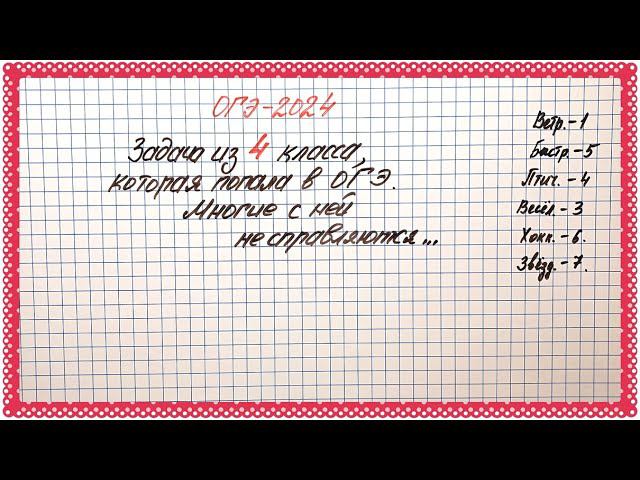 ОГЭ-2024
Задача из 4 класса,
которая попала в ОГЭ.
Многие с ней
не справляются...
Ветр.-1
Быстр.-5
Птич.-4
Весёл.-3
Хокк.-6.
Звёзд.-7.